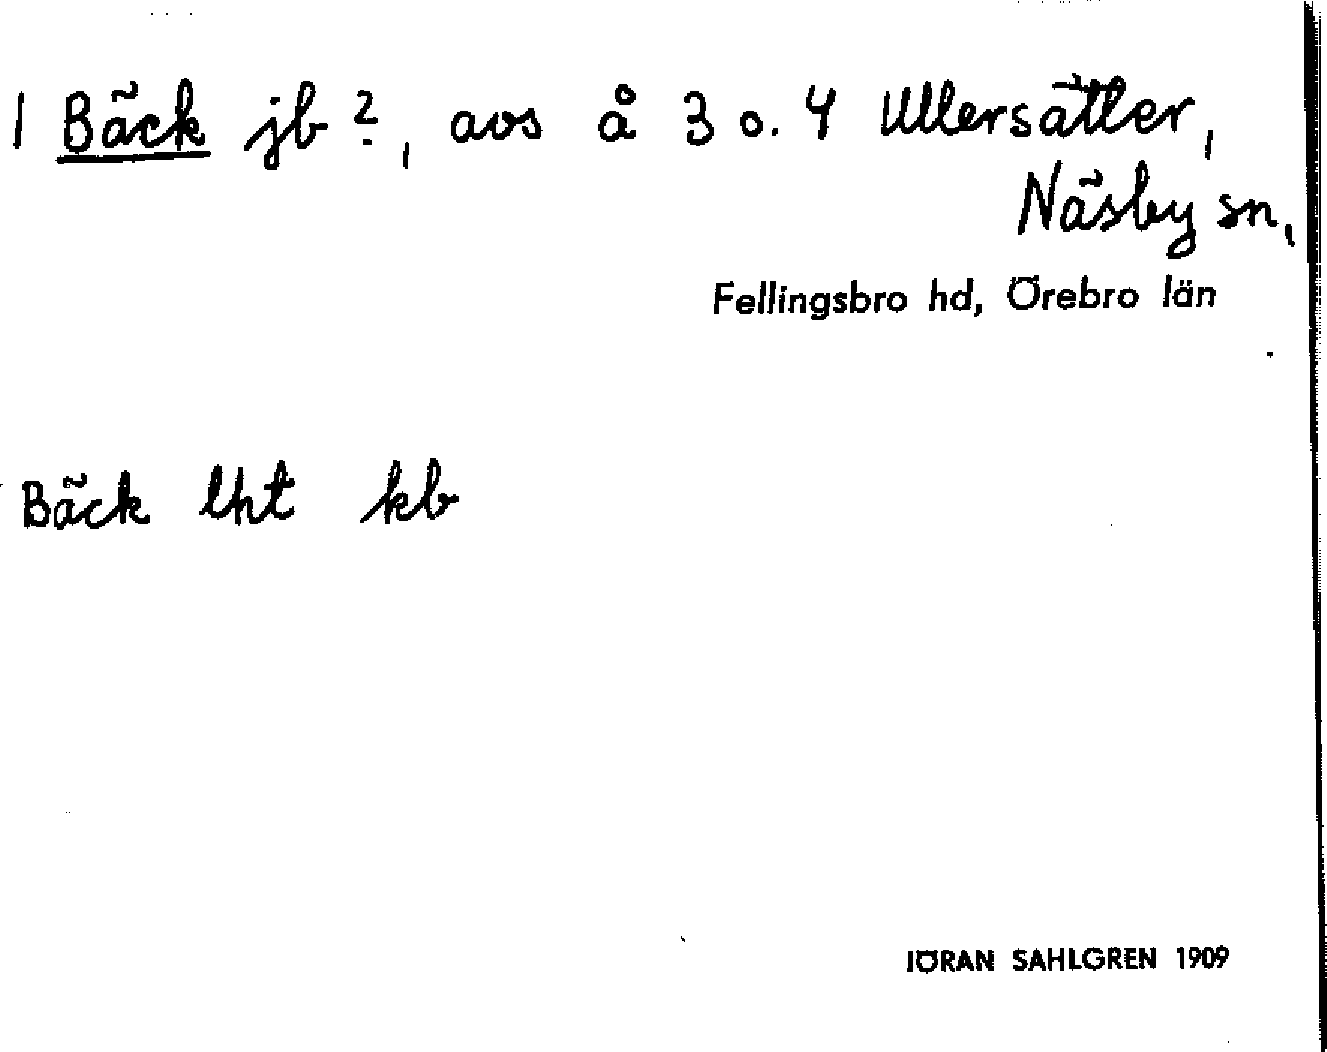 1 Bäck jb?, aos å 3 o. 4 Ullersätter,
Näsby sn,
Fellingsbro hd, Örebro län
Bäck lht kb
JÖRAN SAHLGREN 1909